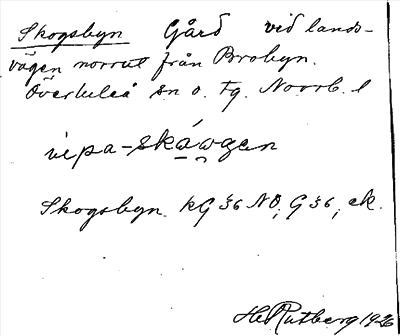 Skogsbyn Gård vid lands-
vägen norrut från Brobyn.
Överluleå sn o. tg. Norrb. l
vipa-skáwgen
Skogsbyn. kG 36 NO; G 36; ek.
H. Rutberg 1926